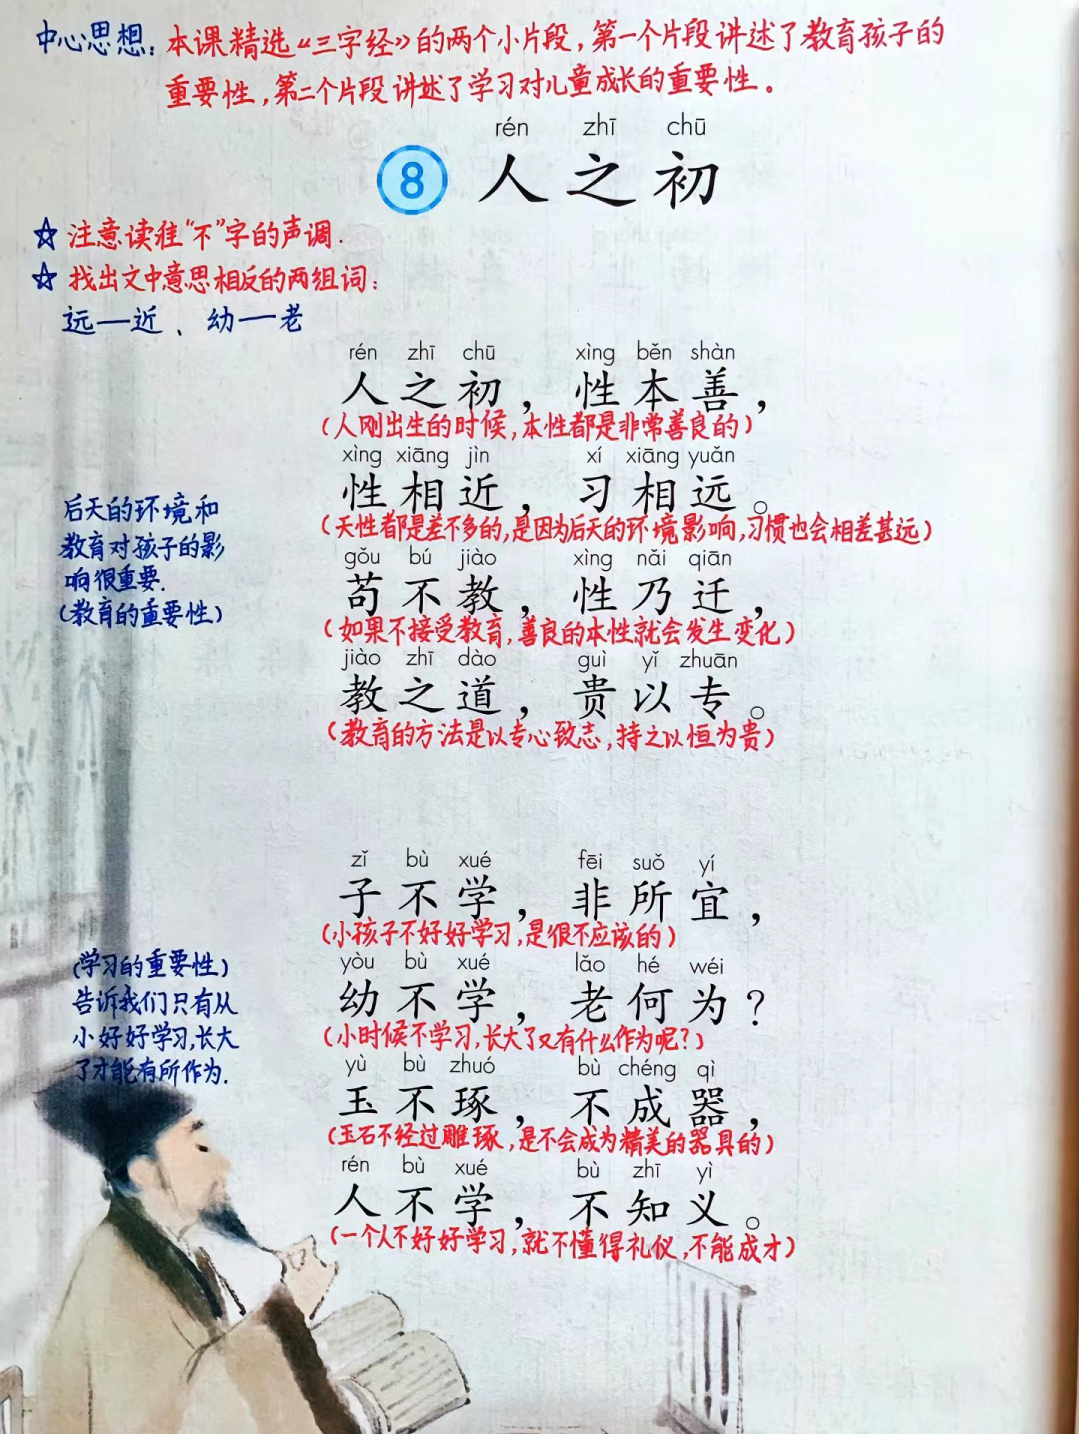 中心思想：本课精选《三字经》的两个小片段，第一个片段讲述了教育孩子的
重要性，第二个片段讲述了学习对儿童成长的重要性。
rén zhī chū
8 人之初
☆ 注意读准“不”字的声调.
☆ 找出文中意思相反的两组词：
远—近、幼—老
rén zhī chū xìng běn shàn
人之初，性本善，
(人刚出生的时候，本性都是非常善良的)
xìng xiāng jìn xí xiāng yuǎn
性相近，习相远。
(天性都是差不多的，是因为后天的环境影响，习惯也会相差甚远)
gǒu bú jiào xìng nǎi qiān
苟不教，性乃迁，
(如果不接受教育，善良的本性就会发生变化)
jiào zhī dào guì yǐ zhuān
教之道，贵以专。
(教育的方法是以专心致志，持之以恒为贵)
后天的环境和
教育对孩子的影
响很重要.
(教育的重要性)
zǐ bù xué fēi suǒ yí
子不学，非所宜，
(小孩子不好好学习，是很不应该的)
yòu bù xué lǎo hé wéi
幼不学，老何为？
(小时候不学习，长大了又有什么作为呢？)
yù bù zhuó bù chéng qì
玉不琢，不成器，
(玉石不经过雕琢，是不会成为精美的器具的)
rén bù xué bù zhī yì
人不学，不知义。
(一个人不好好学习，就不懂得礼仪，不能成才)
(学习的重要性)
告诉我们只有从
小好好学习，长大
了才能有所作为.